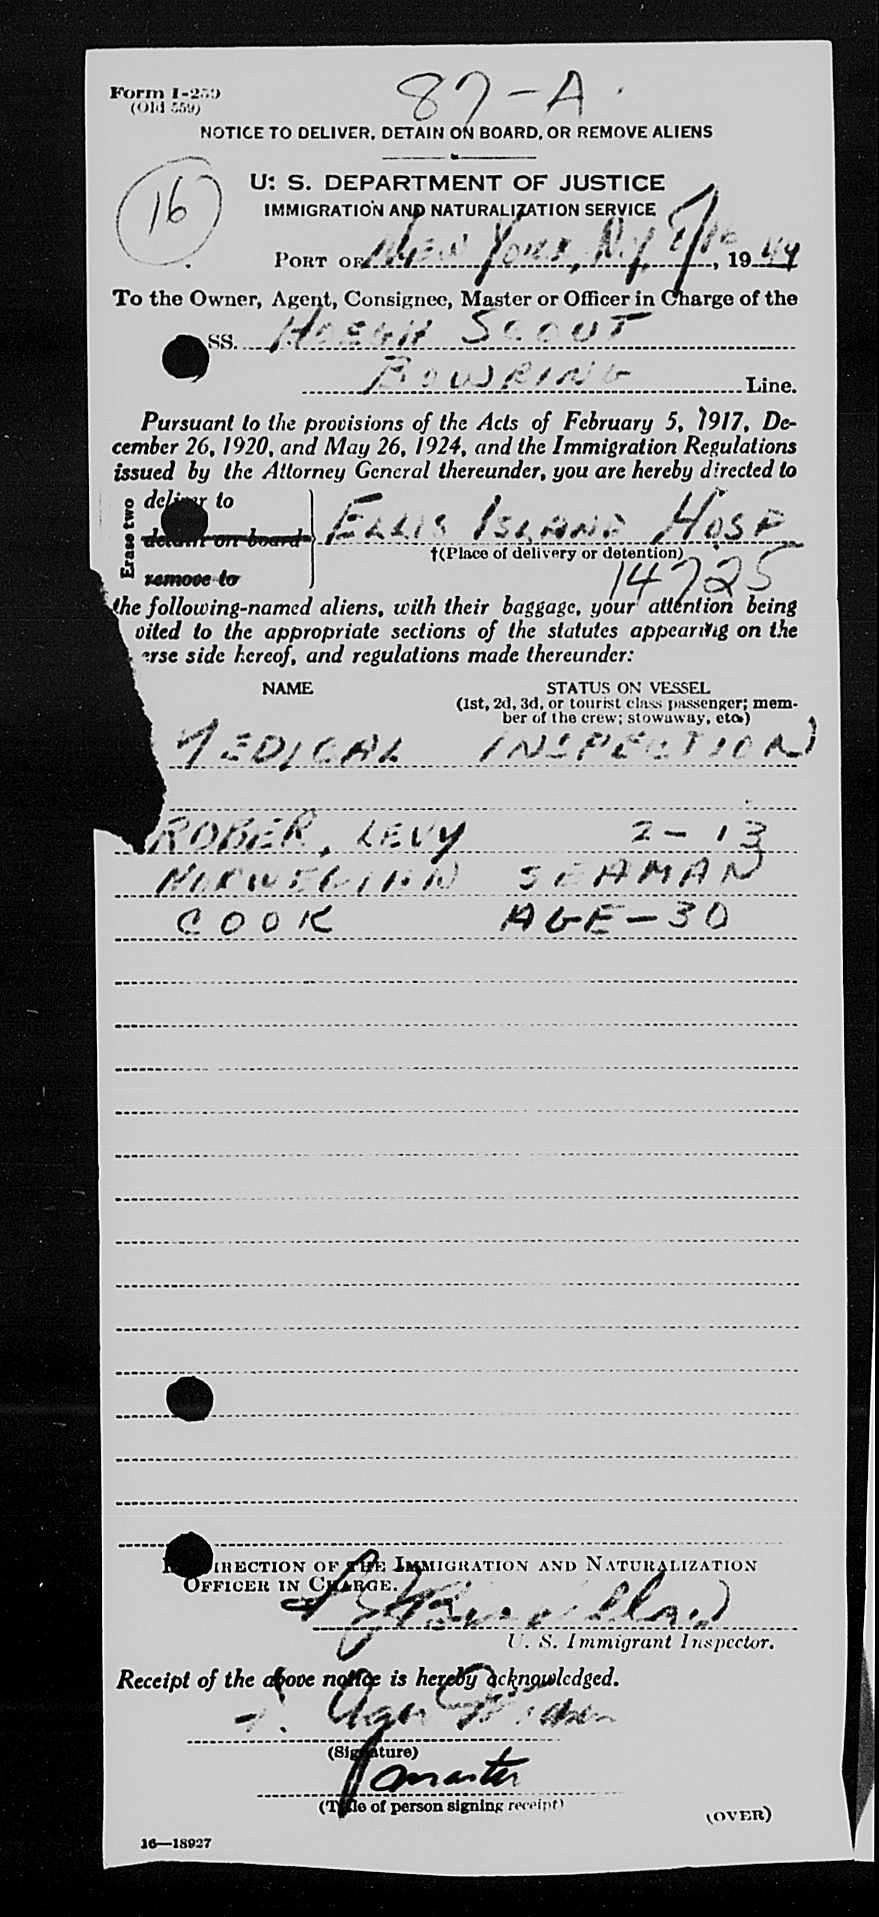 Form I-259
(Old 559)
87-A
NOTICE TO DELIVER, DETAIN ON BOARD, OR REMOVE ALIENS
16
U. S. DEPARTMENT OF JUSTICE
IMMIGRATION AND NATURALIZATION SERVICE
PORT OF NEW YORK, N.Y. 19 44
To the Owner, Agent, Consignee, Master or Officer in Charge of the
SS. HOEGH SCOUT
BOWRING Line.
Pursuant to the provisions of the Acts of February 5, 1917, De-
cember 26, 1920, and May 26, 1924, and the Immigration Regulations
issued by the Attorney General thereunder, you are hereby directed to
Erase two
deliver to
detain on board
remove to
ELLIS ISLAND HOSP
†(Place of delivery or detention)
14725
the following-named aliens, with their baggage, your attention being
vited to the appropriate sections of the statutes appearing on the
erse side hereof, and regulations made thereunder:
NAME STATUS ON VESSEL
(1st, 2d, 3d, or tourist class passenger; mem-
ber of the crew; stowaway, etc.)
MEDICAL INSPECTION
ROBER, LEVY 2-13
NORWEGIAN SEAMAN
COOK AGE-30
DIRECTION OF THE IMMIGRATION AND NATURALIZATION
OFFICER IN CHARGE.
U. S. Immigrant Inspector.
Receipt of the above notice is hereby acknowledged.
(Signature)
master
(Title of person signing receipt)
(OVER)
16—18927